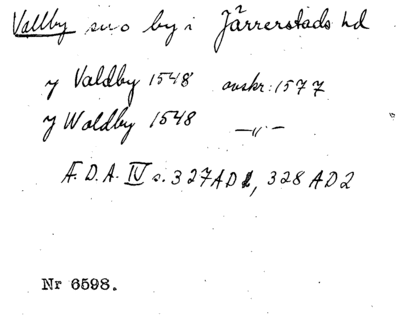 Vallby sn o by i Järrerstads hd
y Valdby 1548 avskr: 1577
y Woldby 1548 —„—
Æ.D.A. IV s. 327 AD 1, 328 AD 2
Nr 6598.